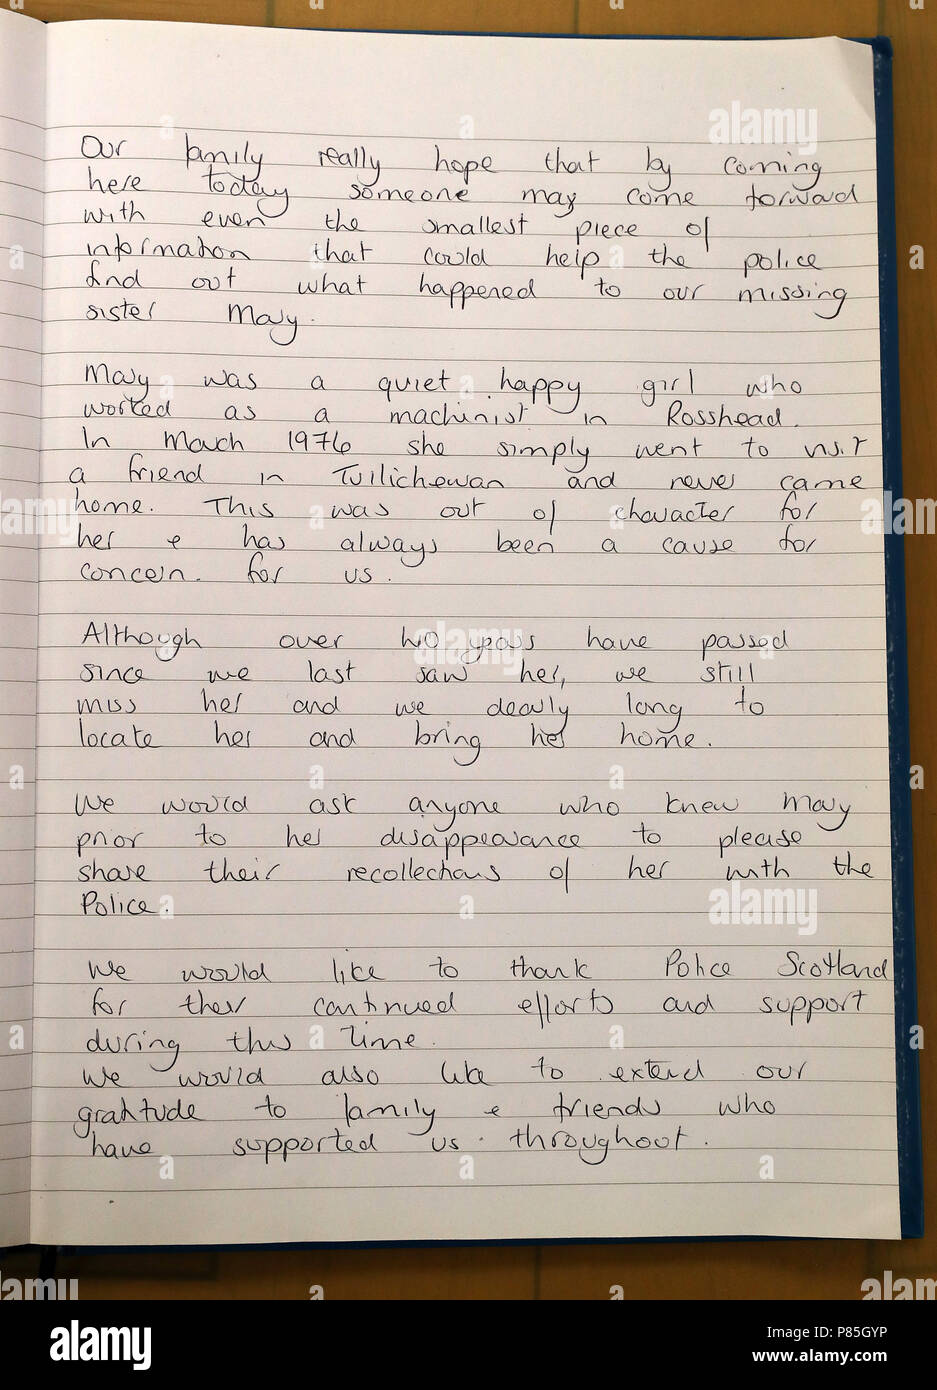 Our family really hope that by coming
here today someone may come forward
with even the smallest piece of
information that could help the police
find out what happened to our missing
sister May.
May was a quiet happy girl who
worked as a machinist in Rosshead.
In March 1976 she simply went to visit
a friend in Tullichewan and never came
home. This was out of character for
her & has always been a cause for
concern. for us.
Although over 40 years have passed
since we last saw her, we still
miss her and we dearly long to
locate her and bring her home.
We would ask anyone who knew May
prior to her disappearance to please
share their recollections of her with the
Police.
We would like to thank Police Scotland
for their continued efforts and support
during this time.
We would also like to extend our
gratitude to family & friends who
have supported us throughout.
alamy
alamy stock photo
P85GYP
www.alamy.com